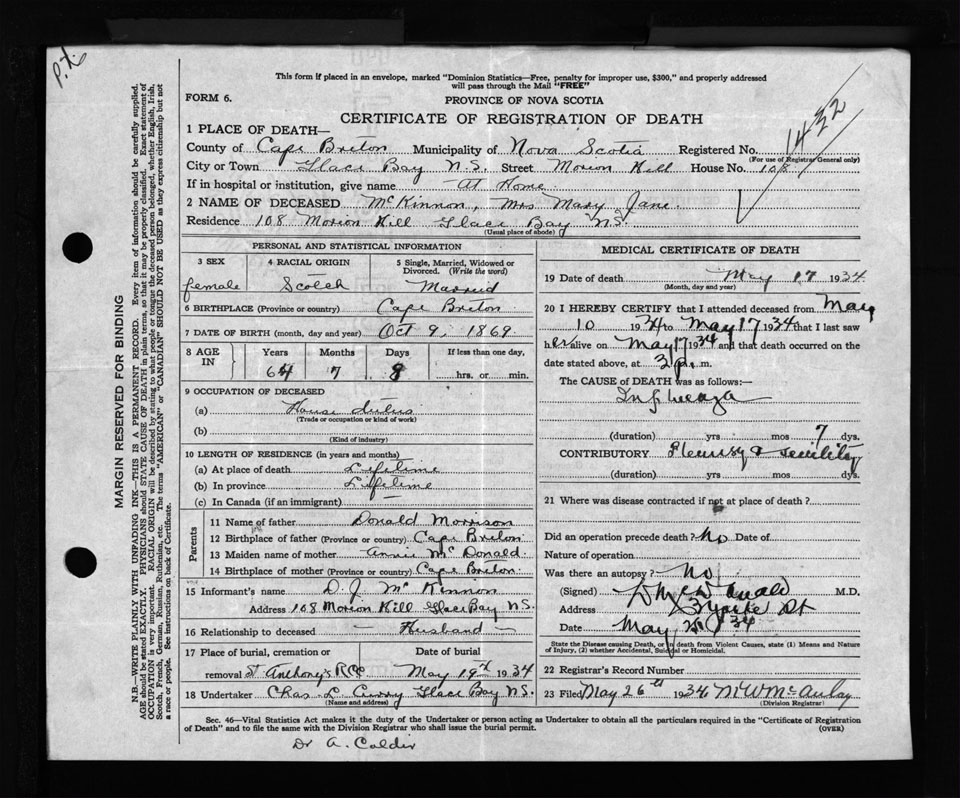 P.X.
This form if placed in an envelope, marked "Dominion Statistics—Free, penalty for improper use, $300," and properly addressed
will pass through the Mail "FREE"
FORM 6.
PROVINCE OF NOVA SCOTIA
CERTIFICATE OF REGISTRATION OF DEATH
1432
1 PLACE OF DEATH—
County of Cape Breton Municipality of Nova Scotia Registered No.
(For use of Registrar General only)
City or Town Glace Bay N.S. Street Morion Hill House No. 108
If in hospital or institution, give name At Home
2 NAME OF DECEASED McKinnon, Mrs Mary Jane.
Residence 108 Morion Hill Glace Bay N.S.
(Usual place of abode)
PERSONAL AND STATISTICAL INFORMATION
3 SEX 4 RACIAL ORIGIN 5 Single, Married, Widowed or
Divorced. (Write the word)
female Scotch Married
6 BIRTHPLACE (Province or country) Cape Breton
7 DATE OF BIRTH (month, day and year) Oct 9, 1869
8 AGE IN Years Months Days If less than one day,
64 7 8 hrs. or min.
9 OCCUPATION OF DECEASED
(a) House duties
(Trade or occupation or kind of work)
(b)
(Kind of industry)
10 LENGTH OF RESIDENCE (in years and months)
(a) At place of death Lifetime
(b) In province Lifetime
(c) In Canada (if an immigrant)
Parents
11 Name of father Donald Morrison
12 Birthplace of father (Province or country) Cape Breton
13 Maiden name of mother Annie McDonald
14 Birthplace of mother (Province or country) Cape Breton
15 Informant's name D. J. McKinnon
Address 108 Morion Hill Glace Bay N.S.
16 Relationship to deceased Husband
17 Place of burial, cremation or Date of burial
removal St Anthony's R.C. May 19th 1934
18 Undertaker Chas. L. Curry Glace Bay N.S.
(Name and address)
MEDICAL CERTIFICATE OF DEATH
19 Date of death May 17 1934
(Month, day and year)
20 I HEREBY CERTIFY that I attended deceased from May
10 1934 to May 17 1934 that I last saw
her alive on May 17 1934 and that death occurred on the
date stated above, at 3 p. m.
The CAUSE of DEATH was as follows:—
Influenza
(duration) yrs mos 7 dys.
CONTRIBUTORY Pleurisy & Senility
(duration) yrs mos dys.
21 Where was disease contracted if not at place of death?
Did an operation precede death? No Date of
Nature of operation
Was there an autopsy? No
(Signed) M.D.
Address St
Date May 34
State the Disease causing Death, or in death from Violent Causes, state (1) Means and Nature
of Injury, (2) whether Accidental, Suicidal or Homicidal.
22 Registrar's Record Number
23 Filed May 26th 1934 M W McAulay
(Division Registrar)
Sec. 46—Vital Statistics Act makes it the duty of the Undertaker or person acting as Undertaker to obtain all the particulars required in the "Certificate of Registration
of Death" and to file the same with the Division Registrar who shall issue the burial permit. (OVER)
Dr A. Calder
MARGIN RESERVED FOR BINDING
N.B.—WRITE PLAINLY WITH UNFADING INK—THIS IS A PERMANENT RECORD. Every item of information should be carefully supplied.
AGE should be stated EXACTLY. PHYSICIANS should STATE CAUSE OF DEATH in plain terms, so that it may be properly classified. Exact statement of
OCCUPATION is very important. RACIAL ORIGIN will be described by stating to what people or tongue the deceased person belonged, whether English, Irish,
Scotch, French, German, Russian, Ruthenian, etc. The terms "AMERICAN" or "CANADIAN" SHOULD NOT BE USED as they express citizenship but not
a race or people. See instructions on back of Certificate.